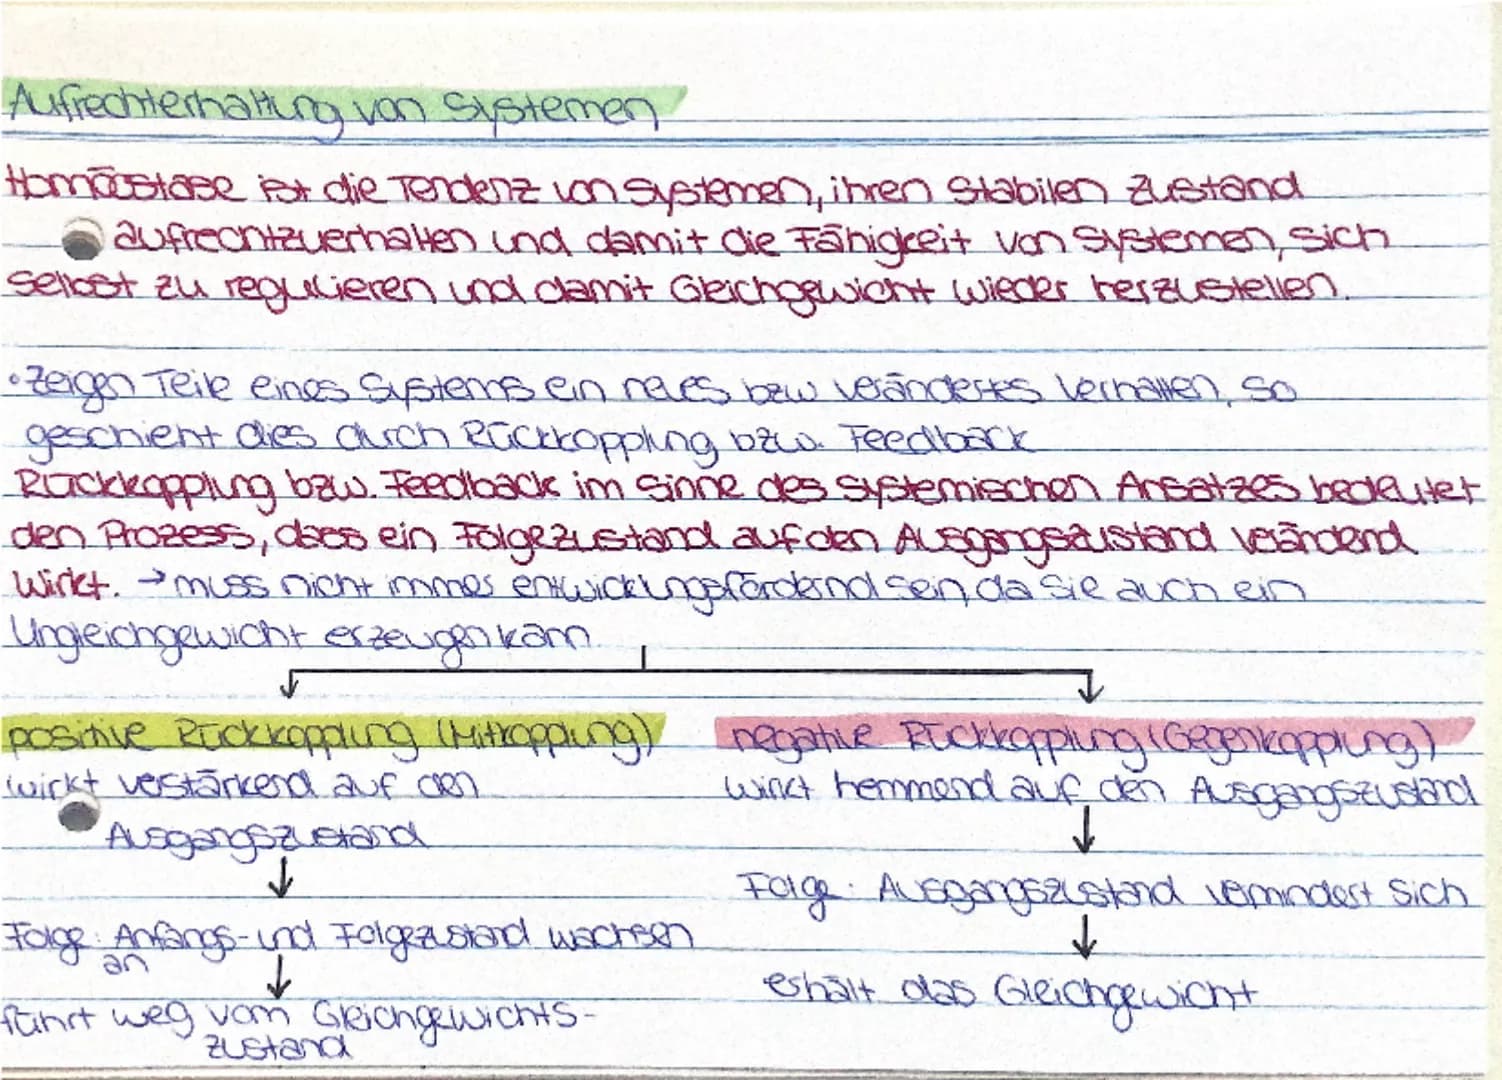 Aufrechterhaltung von Systemen
Homöostase ist die Tendenz von Systemen, ihren stabilen Zustand
aufrechtzuerhalten und damit die Fähigkeit von Systemen, sich
selbst zu regulieren und damit Gleichgewicht wieder herzustellen.
• Zeigen Teile eines Systems ein neues bzw verändertes Verhalten, so
geschieht dies durch Rückkopplung bzw. Feedback
Rückkopplung bzw. Feedback im Sinne des systemischen Ansatzes bedeutet
den Prozess, dass ein Folgezustand auf den Ausgangszustand verändernd
wirkt. → muss nicht immer entwicklungsfördernd sein, da sie auch ein
Ungleichgewicht erzeugen kann
positive Rückkopplung (Mitkopplung)
wirkt verstärkend auf den
Ausgangszustand
↓
Folge: Anfangs- und Folgezustand wachsen
an
↓
führt weg vom Gleichgewichts-
zustand
negative Rückkopplung (Gegenkopplung)
wirkt hemmend auf den Ausgangszustand
↓
Folge: Ausgangszustand vermindert sich
↓
erhält das Gleichgewicht